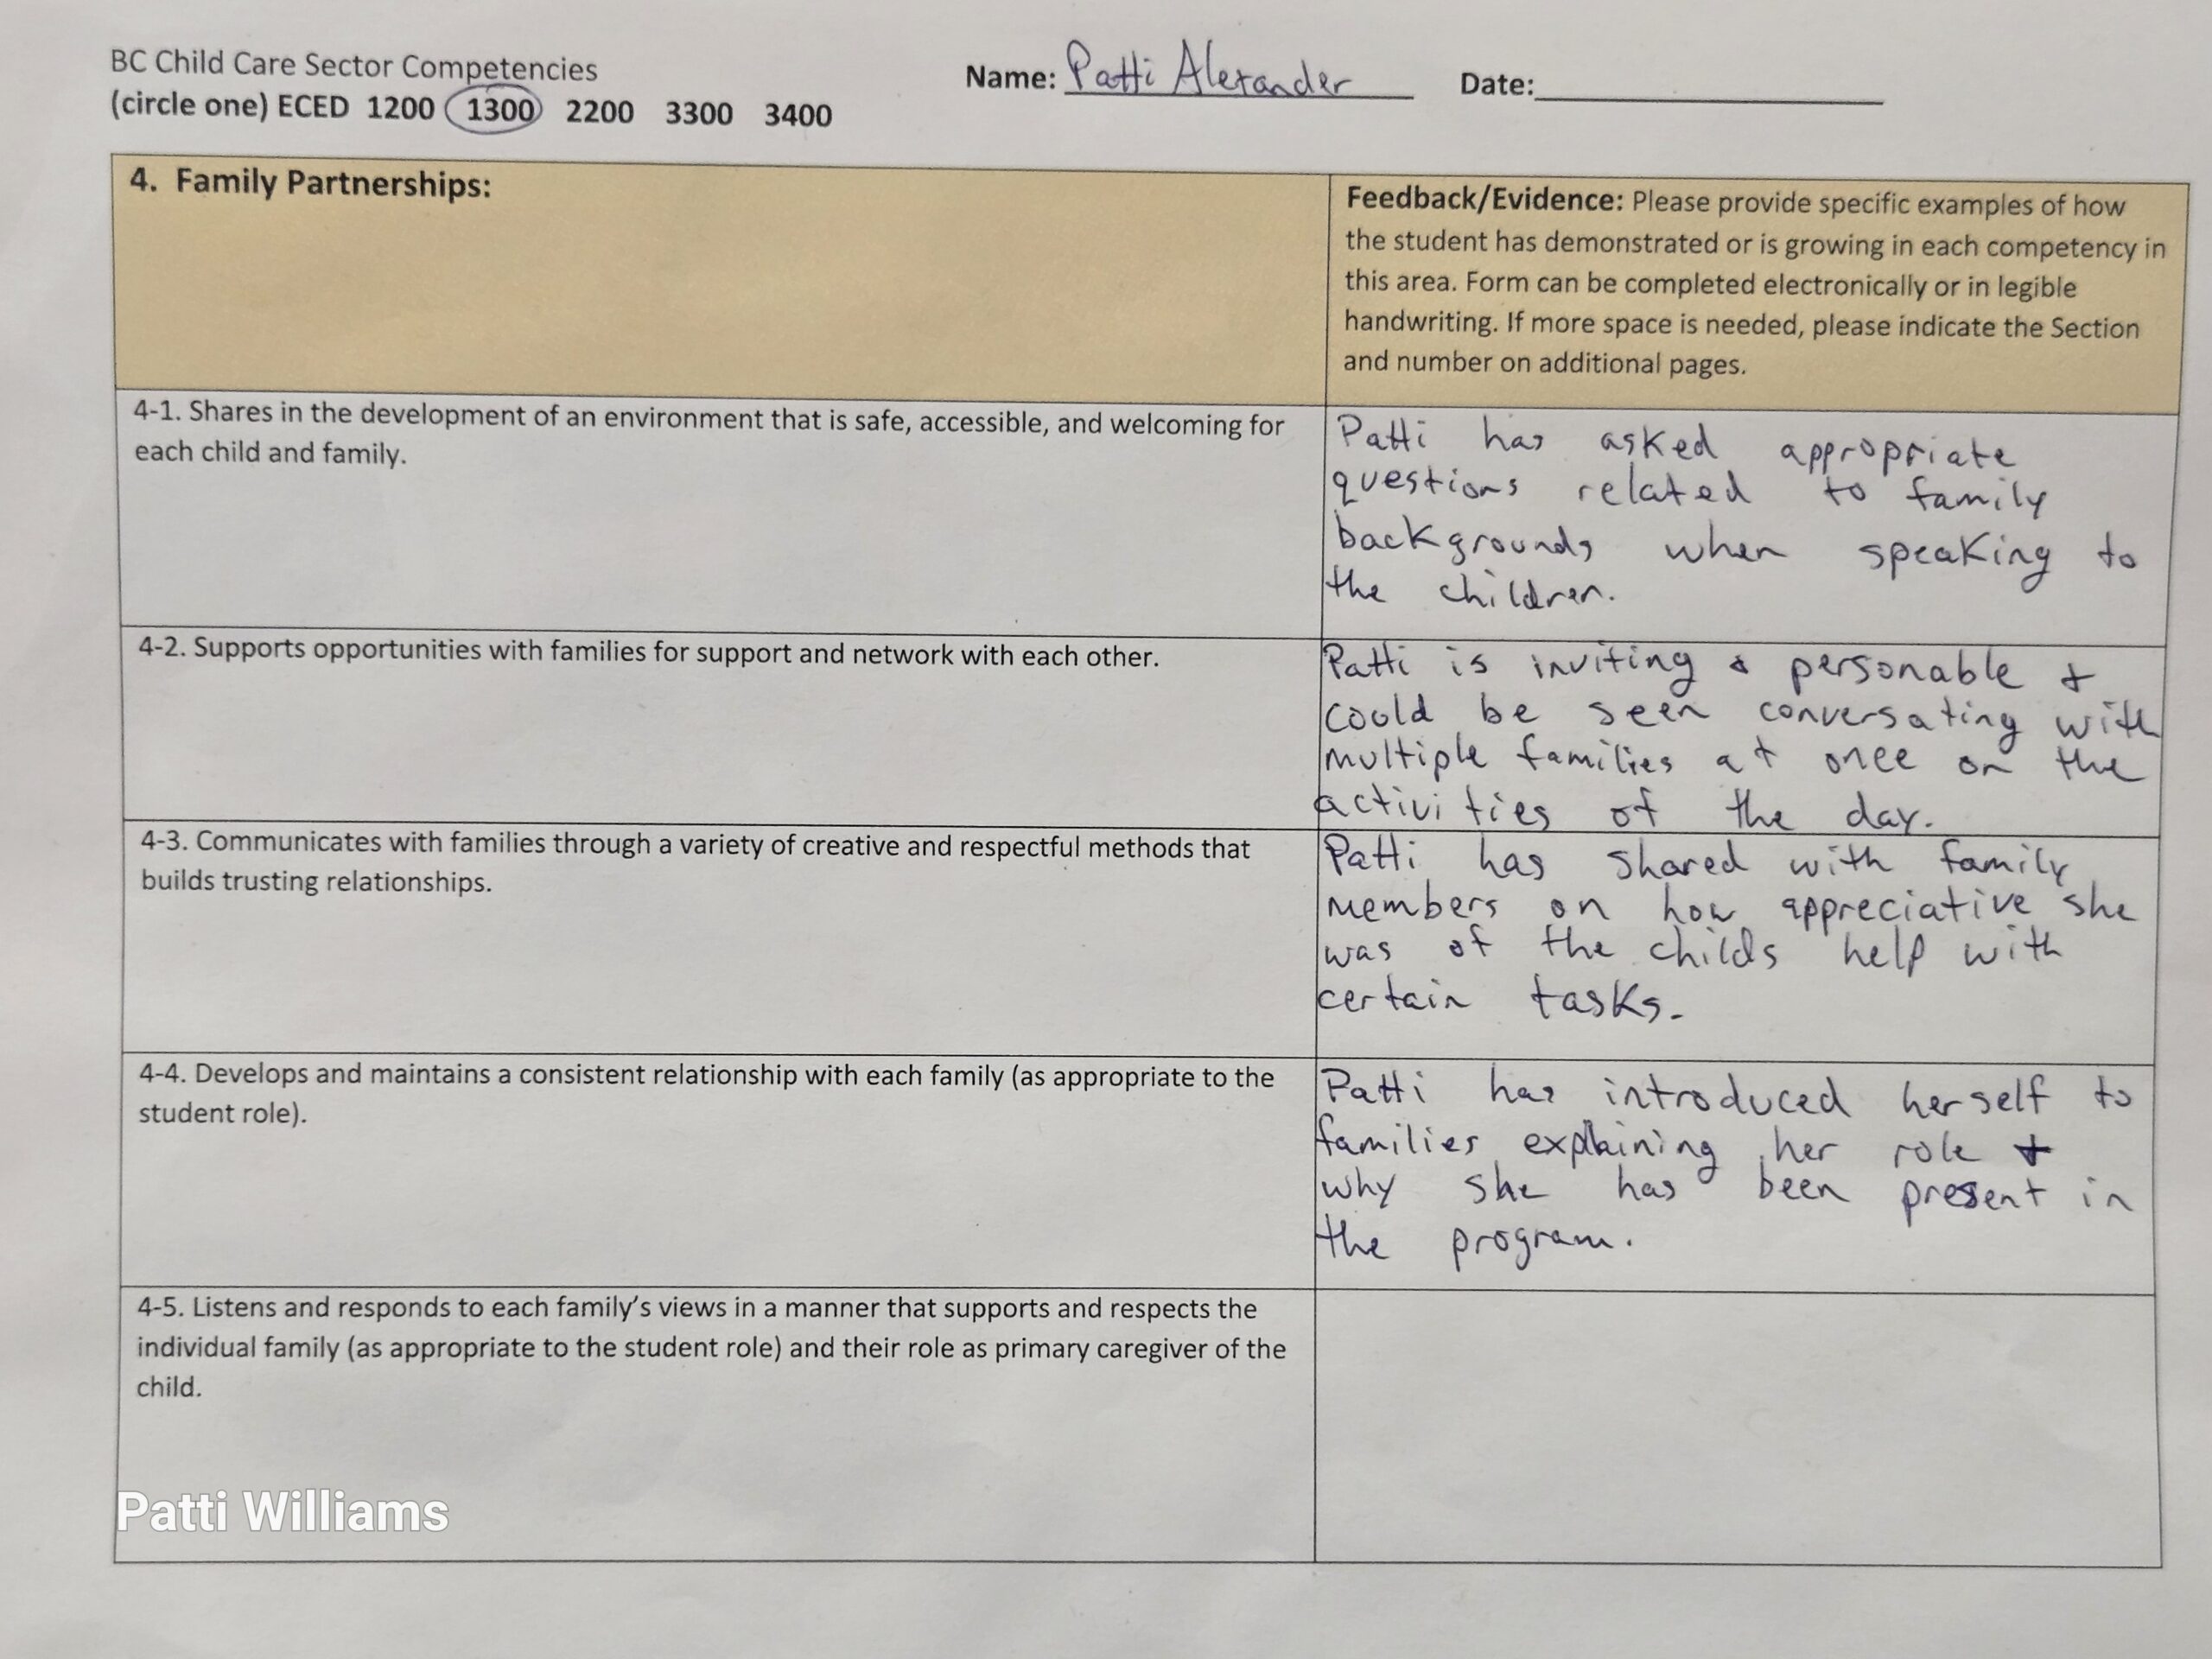 BC Child Care Sector Competencies
(circle one) ECED 1200 1300 2200 3300 3400
Name: Patti Alexander Date:
4. Family Partnerships:
Feedback/Evidence: Please provide specific examples of how
the student has demonstrated or is growing in each competency in
this area. Form can be completed electronically or in legible
handwriting. If more space is needed, please indicate the Section
and number on additional pages.
4-1. Shares in the development of an environment that is safe, accessible, and welcoming for
each child and family.
Patti has asked appropriate
questions related to family
backgrounds when speaking to
the children.
4-2. Supports opportunities with families for support and network with each other.
Patti is inviting & personable &
could be seen conversating with
multiple families at once on the
activities of the day.
4-3. Communicates with families through a variety of creative and respectful methods that
builds trusting relationships.
Patti has shared with family
members on how appreciative she
was of the childs help with
certain tasks.
4-4. Develops and maintains a consistent relationship with each family (as appropriate to the
student role).
Patti has introduced herself to
families explaining her role &
why she has been present in
the program.
4-5. Listens and responds to each family's views in a manner that supports and respects the
individual family (as appropriate to the student role) and their role as primary caregiver of the
child.
Patti Williams